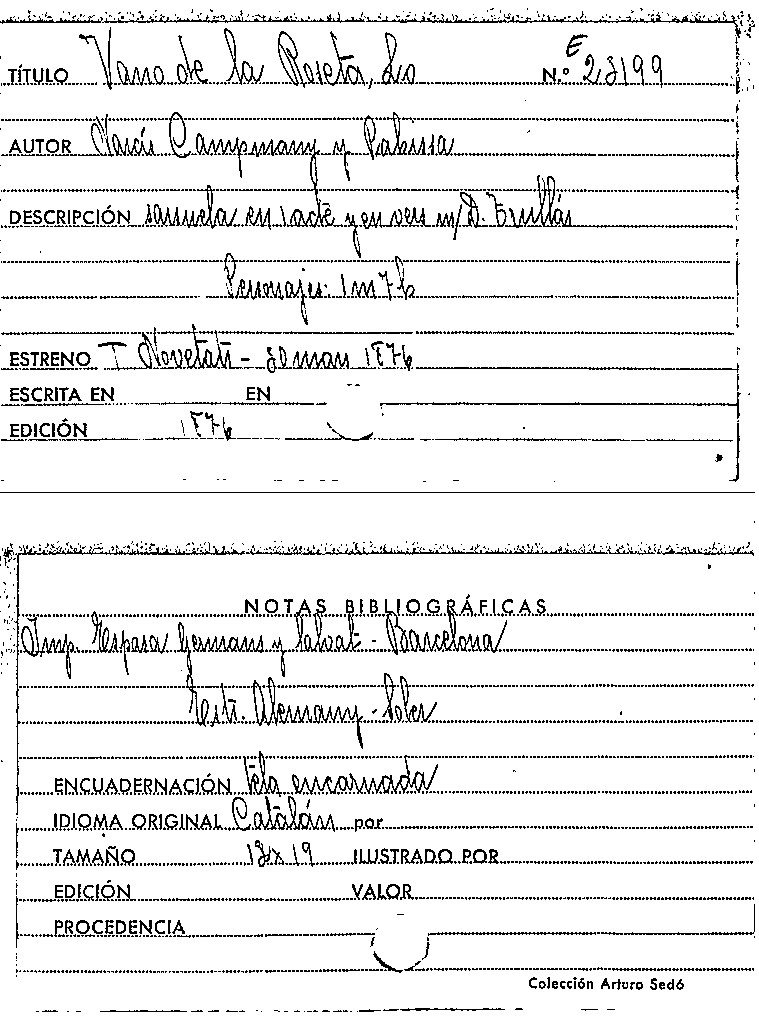 TÍTULO Vano de la Roseta, Lo N.º E 23199
AUTOR Narcís Campmany y Pahissa
DESCRIPCIÓN sarsuela en 1 acte y en vers m/ D.
Personajes: 1 m 7 h
ESTRENO T Novetats - mars 1876
ESCRITA EN EN
EDICIÓN 1876
NOTAS BIBLIOGRÁFICAS
Imp. Espasa germans y Salvat - Barcelona
Estr. Alemany - Soler
ENCUADERNACIÓN tela encarnada
IDIOMA ORIGINAL Catalán por
TAMAÑO 13x19 ILUSTRADO POR
EDICIÓN VALOR
PROCEDENCIA
Colección Arturo Sedó